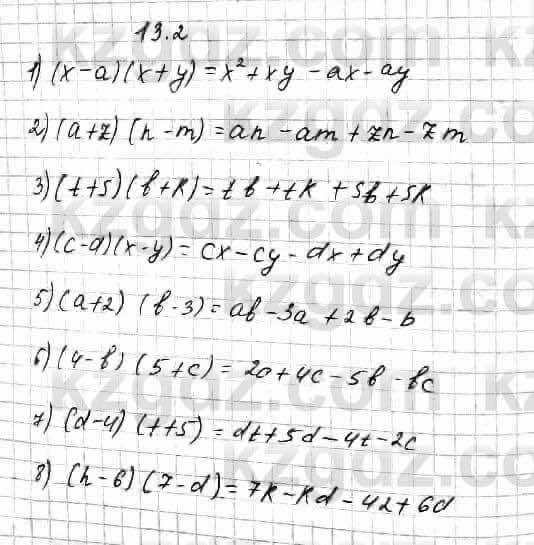 13.2
1) (x-a)(x+y)=x²+xy-ax-ay
2) (a+z)(n-m)=an-am+zn-zm
3) (t+s)(b+k)=tb+tk+sb+sk
4) (c-d)(x-y)=cx-cy-dx+dy
5) (a+2)(b-3)=ab-3a+2b-b
6) (4-b)(5+c)=20+4c-5b-bc
7) (d-4)(t+5)=dt+5d-4t-2c
8) (h-6)(7-d)=7k-kd-42+6d
kzgdz.com